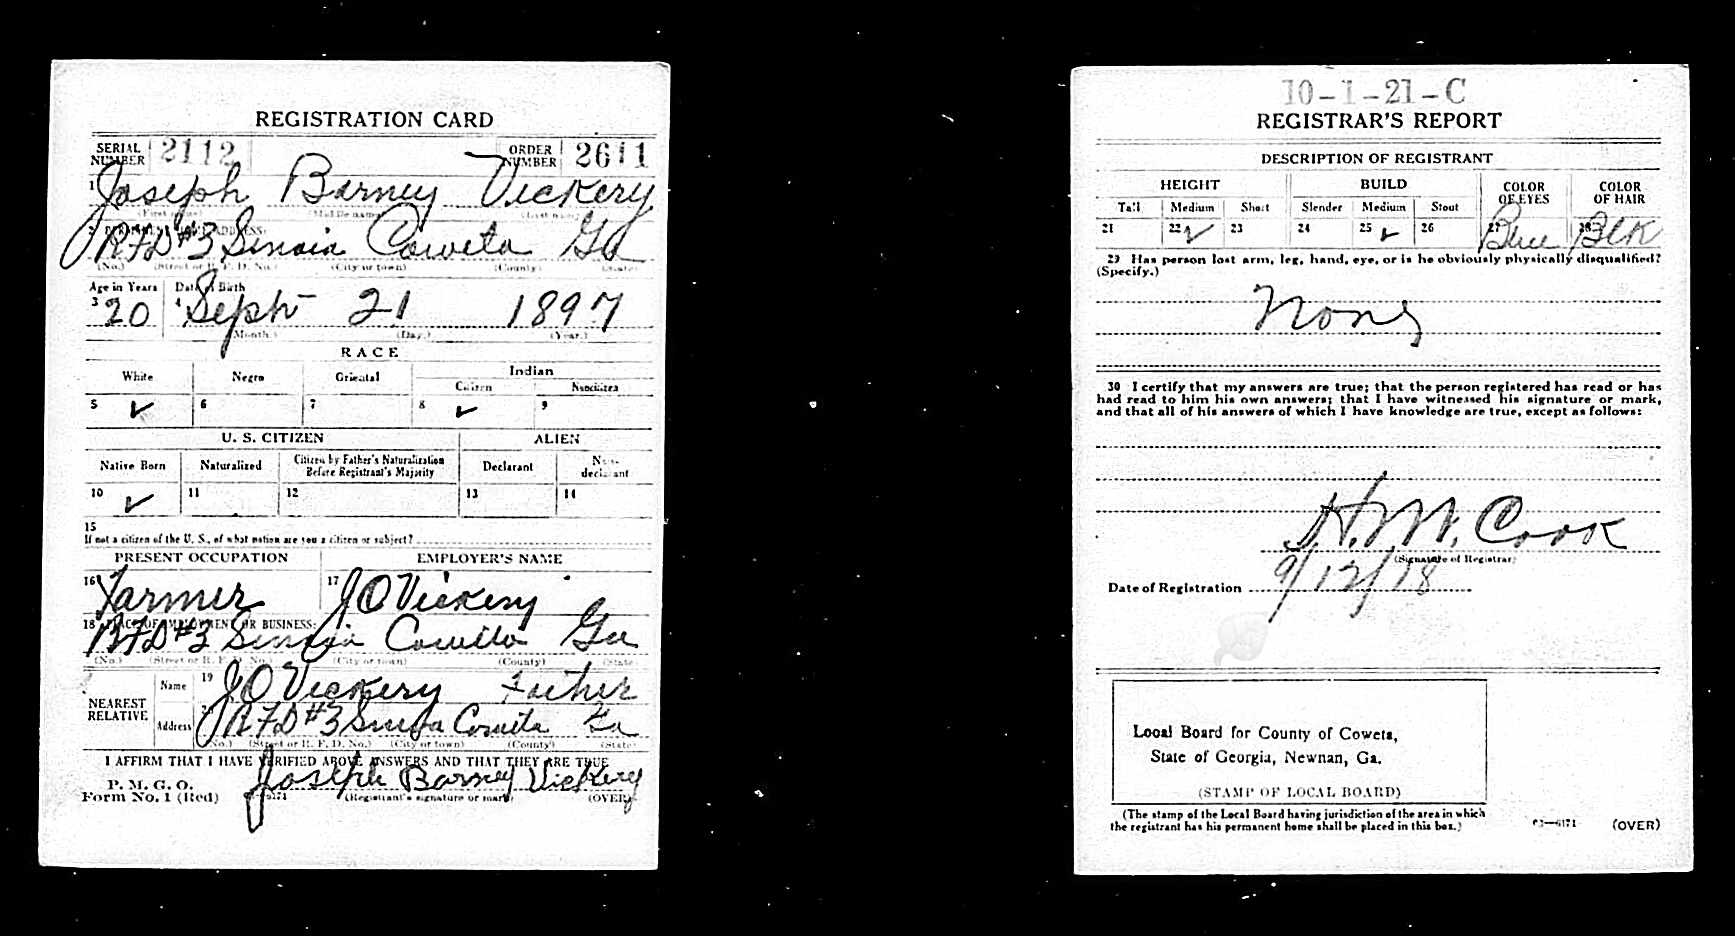 REGISTRATION CARD
SERIAL NUMBER 2112 ORDER NUMBER 2611
1 Joseph Barney Vickery
(First name) (Middle name) (Last name)
2 PERMANENT HOME ADDRESS:
RFD #3 Senoia Coweta Ga
(No.) (Street or R. F. D. No.) (City or town) (County) (State)
Age in Years Date of Birth
3 20 4 Sept 21 1897
(Month.) (Day.) (Year.)
RACE
White Negro Oriental Indian
Citizen Noncitizen
5 ✓ 6 7 8 ✓ 9
U. S. CITIZEN ALIEN
Native Born Naturalized Citizen by Father's Naturalization Before Registrant's Majority Declarant Non-declarant
10 ✓ 11 12 13 14
15
If not a citizen of the U. S., of what nation are you a citizen or subject?
PRESENT OCCUPATION EMPLOYER'S NAME
16 Farmer 17 J O Vickery
18 PLACE OF EMPLOYMENT OR BUSINESS:
RFD #3 Senoia Coweta Ga
(No.) (Street or R. F. D. No.) (City or town) (County) (State)
NEAREST RELATIVE
Name 19 J O Vickery Father
Address 20 RFD #3 Senoia Coweta Ga
(No.) (Street or R. F. D. No.) (City or town) (County) (State)
I AFFIRM THAT I HAVE VERIFIED ABOVE ANSWERS AND THAT THEY ARE TRUE
P. M. G. O.
Form No. 1 (Red) Joseph Barney Vickery
(Registrant's signature or mark) (OVER)
10-1-21-C
REGISTRAR'S REPORT
DESCRIPTION OF REGISTRANT
HEIGHT BUILD COLOR OF EYES COLOR OF HAIR
Tall Medium Short Slender Medium Stout
21 22 ✓ 23 24 25 ✓ 26 27 Blue 28 Blk
29 Has person lost arm, leg, hand, eye, or is he obviously physically disqualified?
(Specify.)
None
30 I certify that my answers are true; that the person registered has read or has
had read to him his own answers; that I have witnessed his signature or mark,
and that all of his answers of which I have knowledge are true, except as follows:
H. M. Cook
(Signature of Registrar)
Date of Registration 9/12/18
Local Board for County of Coweta,
State of Georgia, Newnan, Ga.
(STAMP OF LOCAL BOARD)
(The stamp of the Local Board having jurisdiction of the area in which
the registrant has his permanent home shall be placed in this box.)
03—6171 (OVER)